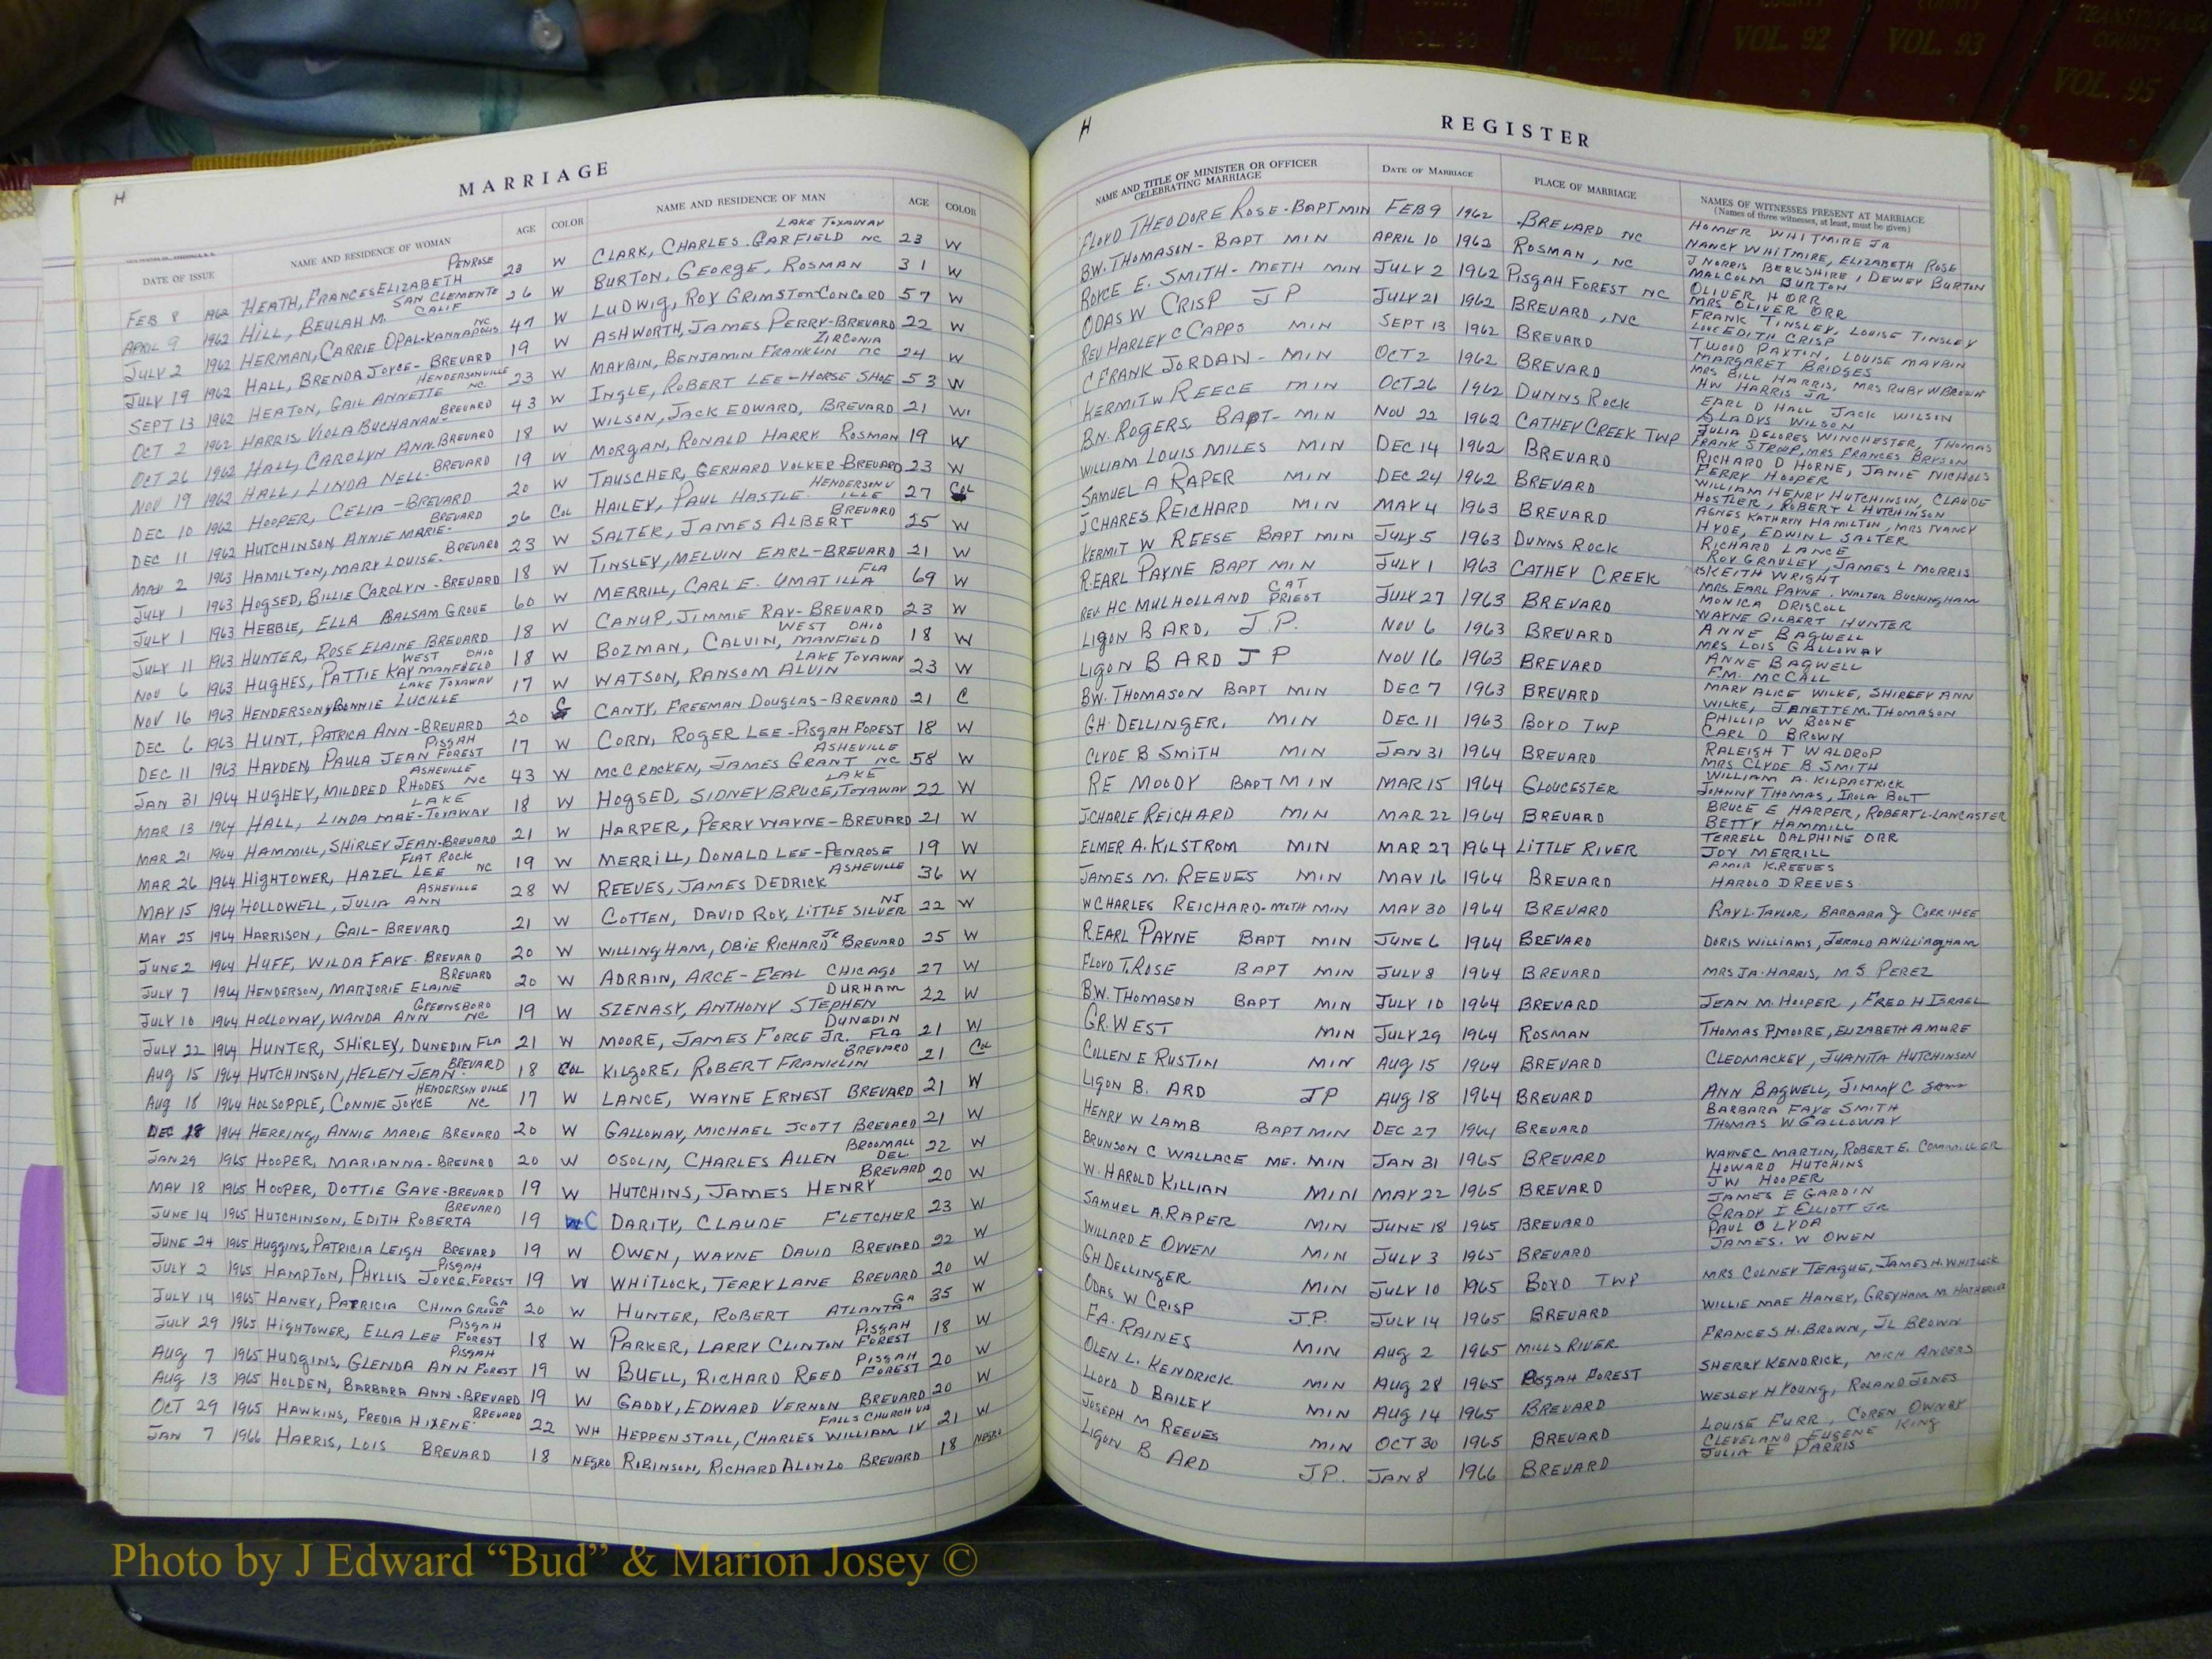 COUNTY VOL. 92
COUNTY VOL. 93
COUNTY VOL. 95
H
MARRIAGE
DATE OF ISSUE NAME AND RESIDENCE OF WOMAN AGE COLOR NAME AND RESIDENCE OF MAN AGE COLOR
FEB 8 1962 HEATH, FRANCES ELIZABETH PENROSE 23 W CLARK, CHARLES GARFIELD LAKE TOXAWAY NC 23 W
APRIL 9 1962 HILL, BEULAH M. SAN CLEMENTE CALIF 26 W BURTON, GEORGE, ROSMAN 31 W
JULY 2 1962 HERMAN, CARRIE OPAL-KANNAPOLIS NC 47 W LUDWIG, ROY GRIMSTON-CONCORD 57 W
JULY 19 1962 HALL, BRENDA JOYCE-BREVARD 19 W ASHWORTH, JAMES PERRY-BREVARD 22 W
SEPT 13 1962 HEATON, GAIL ANNETTE HENDERSONVILLE NC 23 W MAYBIN, BENJAMIN FRANKLIN ZIRCONIA NC 24 W
OCT 2 1962 HARRIS VIOLA BUCHANAN-BREVARD 43 W INGLE, ROBERT LEE-HORSE SHOE 53 W
OCT 26 1962 HALL, CAROLYN ANN. BREVARD 18 W WILSON, JACK EDWARD, BREVARD 21 W
NOV 19 1962 HALL, LINDA NELL-BREVARD 19 W MORGAN, RONALD HARRY ROSMAN 19 W
DEC 10 1962 HOOPER, CELIA-BREVARD 20 W TAUSCHER, GERHARD VOLKER BREVARD 23 W
DEC 11 1962 HUTCHINSON, ANNIE MARIE-BREVARD 26 COL HAILEY, PAUL HASTLE HENDERSONVILLE 27 COL
MAY 2 1963 HAMILTON, MARY LOUISE-BREVARD 23 W SALTER, JAMES ALBERT BREVARD 25 W
JULY 1 1963 HOGSED, BILLIE CAROLYN-BREVARD 18 W TINSLEY, MELVIN EARL-BREVARD 21 W
JULY 1 1963 HEBBLE, ELLA BALSAM GROVE 60 W MERRILL, CARL E. UMATILLA FLA 69 W
JULY 11 1963 HUNTER, ROSE ELAINE BREVARD 18 W CANUP, JIMMIE RAY-BREVARD 23 W
NOV 6 1963 HUGHES, PATTIE KAY WEST MANFIELD OHIO 18 W BOZMAN, CALVIN, WEST MANFIELD OHIO 18 W
NOV 16 1963 HENDERSON, BONNIE LUCILLE LAKE TOXAWAY 17 W WATSON, RANSOM ALVIN LAKE TOXAWAY 23 W
DEC 6 1963 HUNT, PATRICA ANN-BREVARD 20 C CANTY, FREEMAN DOUGLAS-BREVARD 21 C
DEC 11 1963 HAYDEN, PAULA JEAN PISGAH FOREST 17 W CORN, ROGER LEE-PISGAH FOREST 18 W
JAN 31 1964 HUGHEY, MILDRED RHODES ASHEVILLE NC 43 W MCCRACKEN, JAMES GRANT ASHEVILLE NC 58 W
MAR 13 1964 HALL, LINDA MAE-LAKE TOXAWAY 18 W HOGSED, SIDNEY BRUCE, LAKE TOXAWAY 22 W
MAR 21 1964 HAMMILL, SHIRLEY JEAN-BREVARD 21 W HARPER, PERRY WAYNE-BREVARD 21 W
MAR 26 1964 HIGHTOWER, HAZEL LEE FLAT ROCK NC 19 W MERRILL, DONALD LEE-PENROSE 19 W
MAY 15 1964 HOLLOWELL, JULIA ANN ASHEVILLE 28 W REEVES, JAMES DEDRICK ASHEVILLE 36 W
MAY 25 1964 HARRISON, GAIL-BREVARD 21 W COTTEN, DAVID ROY, LITTLE SILVER NJ 22 W
JUNE 2 1964 HUFF, WILDA FAYE-BREVARD 20 W WILLINGHAM, OBIE RICHARD JR BREVARD 25 W
JULY 7 1964 HENDERSON, MARJORIE ELAINE BREVARD 20 W ADRAIN, ARCE-EEAL CHICAGO 27 W
JULY 10 1964 HOLLOWAY, WANDA ANN GREENSBORO NC 19 W SZENASY, ANTHONY STEPHEN DURHAM 22 W
JULY 22 1964 HUNTER, SHIRLEY, DUNEDIN FLA 21 W MOORE, JAMES FORCE JR. DUNEDIN FLA 21 W
AUG 15 1964 HUTCHINSON, HELEN JEAN BREVARD 18 COL KILGORE, ROBERT FRANKLIN BREVARD 21 COL
AUG 18 1964 HOLSOPPLE, CONNIE JOYCE HENDERSONVILLE NC 17 W LANCE, WAYNE ERNEST BREVARD 21 W
DEC 18 1964 HERRING, ANNIE MARIE BREVARD 20 W GALLOWAY, MICHAEL SCOTT BREVARD 21 W
JAN 29 1965 HOOPER, MARIANNA-BREVARD 20 W OSOLIN, CHARLES ALLEN BROOMALL DEL. 22 W
MAY 18 1965 HOOPER, DOTTIE GAYE-BREVARD 19 W HUTCHINS, JAMES HENRY BREVARD 20 W
JUNE 14 1965 HUTCHINSON, EDITH ROBERTA BREVARD 19 C DARITY, CLAUDE FLETCHER 23 W
JUNE 24 1965 HUGGINS, PATRICIA LEIGH BREVARD 19 W OWEN, WAYNE DAVID BREVARD 22 W
JULY 2 1965 HAMPTON, PHYLLIS JOYCE PISGAH FOREST 19 W WHITLOCK, TERRY LANE BREVARD 20 W
JULY 14 1965 HANEY, PATRICIA CHINA GROVE GA 20 W HUNTER, ROBERT ATLANTA GA 35 W
JULY 29 1965 HIGHTOWER, ELLA LEE PISGAH FOREST 18 W PARKER, LARRY CLINTON PISGAH FOREST 18 W
AUG 7 1965 HUDGINS, GLENDA ANN PISGAH FOREST 19 W BUELL, RICHARD REED PISGAH FOREST 20 W
AUG 13 1965 HOLDEN, BARBARA ANN-BREVARD 19 W GADDY, EDWARD VERNON BREVARD 20 W
OCT 29 1965 HAWKINS, FREDIA HIXENE BREVARD 22 WH HEPPENSTALL, CHARLES WILLIAM IV FALLS CHURCH VA 21 W
JAN 7 1966 HARRIS, LOIS BREVARD 18 NEGRO ROBINSON, RICHARD ALONZO BREVARD 18 NEGRO
H
REGISTER
NAME AND TITLE OF MINISTER OR OFFICER CELEBRATING MARRIAGE DATE OF MARRIAGE PLACE OF MARRIAGE NAMES OF WITNESSES PRESENT AT MARRIAGE
(Names of three witnesses, at least, must be given)
FLOYD THEODORE ROSE-BAPT MIN FEB 9 1962 BREVARD NC HOMER WHITMIRE JR NANCY WHITMIRE, ELIZABETH ROSE
BW. THOMASON-BAPT MIN APRIL 10 1962 ROSMAN, NC J NORRIS BERKSHIRE, DEWEY BURTON MALCOLM BURTON
ROYCE E. SMITH-METH MIN JULY 2 1962 PISGAH FOREST NC OLIVER H ORR MRS OLIVER ORR
ODAS W CRISP JP JULY 21 1962 BREVARD, NC FRANK TINSLEY, LOUISE TINSLEY EDITH CRISP
REV HARLEY C CAPPS MIN SEPT 13 1962 BREVARD T WOOD PAXTON, LOUISE MAYBIN MARGARET BRIDGES
C FRANK JORDAN-MIN OCT 2 1962 BREVARD MRS BILL HARRIS, MRS RUBY W BROWN HW HARRIS JR
KERMIT W REECE MIN OCT 26 1962 DUNNS ROCK EARL D HALL JACK WILSON GLADYS WILSON
B.N. ROGERS, BAPT-MIN NOV 22 1962 CATHEY CREEK TWP JULIA DELORES WINCHESTER, THOMAS FRANK STROUP, MRS FRANCES BRYSON
WILLIAM LOUIS MILES MIN DEC 14 1962 BREVARD RICHARD D HORNE, JANIE NICHOLS PERRY HOOPER
SAMUEL A RAPER MIN DEC 24 1962 BREVARD WILLIAM HENRY HUTCHINSON, CLAUDE HOSTLER, ROBERT L HUTCHINSON
J CHARES REICHARD MIN MAY 4 1963 BREVARD AGNES KATHRYN HAMILTON, MRS NANCY HYDE, EDWIN L SALTER
KERMIT W REESE BAPT MIN JULY 5 1963 DUNNS ROCK RICHARD LANCE ROY GRAVLEY, JAMES L MORRIS
R. EARL PAYNE BAPT MIN JULY 1 1963 CATHEY CREEK KEITH WRIGHT MRS EARL PAYNE. WALTER BUCKINGHAM
REV. HC MULHOLLAND CAT PRIEST JULY 27 1963 BREVARD MONICA DRISCOLL WAYNE GILBERT HUNTER
LIGON B ARD, J.P. NOV 6 1963 BREVARD ANNE BAGWELL MRS LOIS GALLOWAY
LIGON B ARD JP NOV 16 1963 BREVARD ANNE BAGWELL F.M. MCCALL
BW. THOMASON BAPT MIN DEC 7 1963 BREVARD MARY ALICE WILKE, SHIRLEY ANN WILKE, JANETTE M. THOMASON
GH. DELLINGER, MIN DEC 11 1963 BOYD TWP PHILLIP W BOONE CARL D BROWN
CLYDE B SMITH MIN JAN 31 1964 BREVARD RALEIGH T WALDROP MRS CLYDE B SMITH
RE MOODY BAPT MIN MAR 15 1964 GLOUCESTER WILLIAM A. KILPACTRICK JOHNNY THOMAS, IROLA BOLT
J. CHARLE REICHARD MIN MAR 22 1964 BREVARD BRUCE E HARPER, ROBERT L. LANCASTER BETTY HAMMILL
ELMER A. KILSTROM MIN MAR 27 1964 LITTLE RIVER TERRELL DALPHINE ORR JOY MERRILL
JAMES M. REEVES MIN MAY 16 1964 BREVARD K. REEVES HAROLD D REEVES
W CHARLES REICHARD-METH MIN MAY 30 1964 BREVARD RAY L. TAYLOR, BARBARA J CORRIHEE
R. EARL PAYNE BAPT MIN JUNE 6 1964 BREVARD DORIS WILLIAMS, JERALD A WILLINGHAM
FLOYD T. ROSE BAPT MIN JULY 8 1964 BREVARD MRS JA. HARRIS, M S PEREZ
B.W. THOMASON BAPT MIN JULY 10 1964 BREVARD JEAN M. HOOPER, FRED H ISRAEL
G.R. WEST MIN JULY 29 1964 ROSMAN THOMAS P. MOORE, ELIZABETH A MOORE
COLLEN E RUSTIN MIN AUG 15 1964 BREVARD CLEO MACKEY, JUANITA HUTCHINSON
LIGON B. ARD JP AUG 18 1964 BREVARD ANN BAGWELL, JIMMY C
HENRY W LAMB BAPT MIN DEC 27 1964 BREVARD BARBARA FAYE SMITH THOMAS W GALLOWAY
BRUNSON C WALLACE ME. MIN JAN 31 1965 BREVARD WAYNE C MARTIN, ROBERT E.
W. HAROLD KILLIAN MIN MAY 22 1965 BREVARD HOWARD HUTCHINS JW HOOPER
SAMUEL A. RAPER MIN JUNE 18 1965 BREVARD JAMES E GARDIN GRADY I ELLIOTT JR
WILLARD E OWEN MIN JULY 3 1965 BREVARD PAUL O LYDA JAMES. W OWEN
GH DELLINGER MIN JULY 10 1965 BOYD TWP MRS COLNEY TEAGUE, JAMES H. WHITLOCK
ODAS W CRISP J.P. JULY 14 1965 BREVARD WILLIE MAE HANEY, GREYHAM M
F.A. RAINES MIN AUG 2 1965 MILLS RIVER FRANCES H. BROWN, JL BROWN
OLEN L. KENDRICK MIN AUG 28 1965 PISGAH FOREST SHERRY KENDRICK, MICH ANDERS
LLOYD D BAILEY MIN AUG 14 1965 BREVARD WESLEY H YOUNG, ROLAND JONES
JOSEPH M REEVES MIN OCT 30 1965 BREVARD LOUISE FURR, COREN OWNBY
LIGON B ARD J.P. JAN 8 1966 BREVARD CLEVELAND EUGENE KING JULIA E PARRIS
Photo by J Edward “Bud” & Marion Josey ©